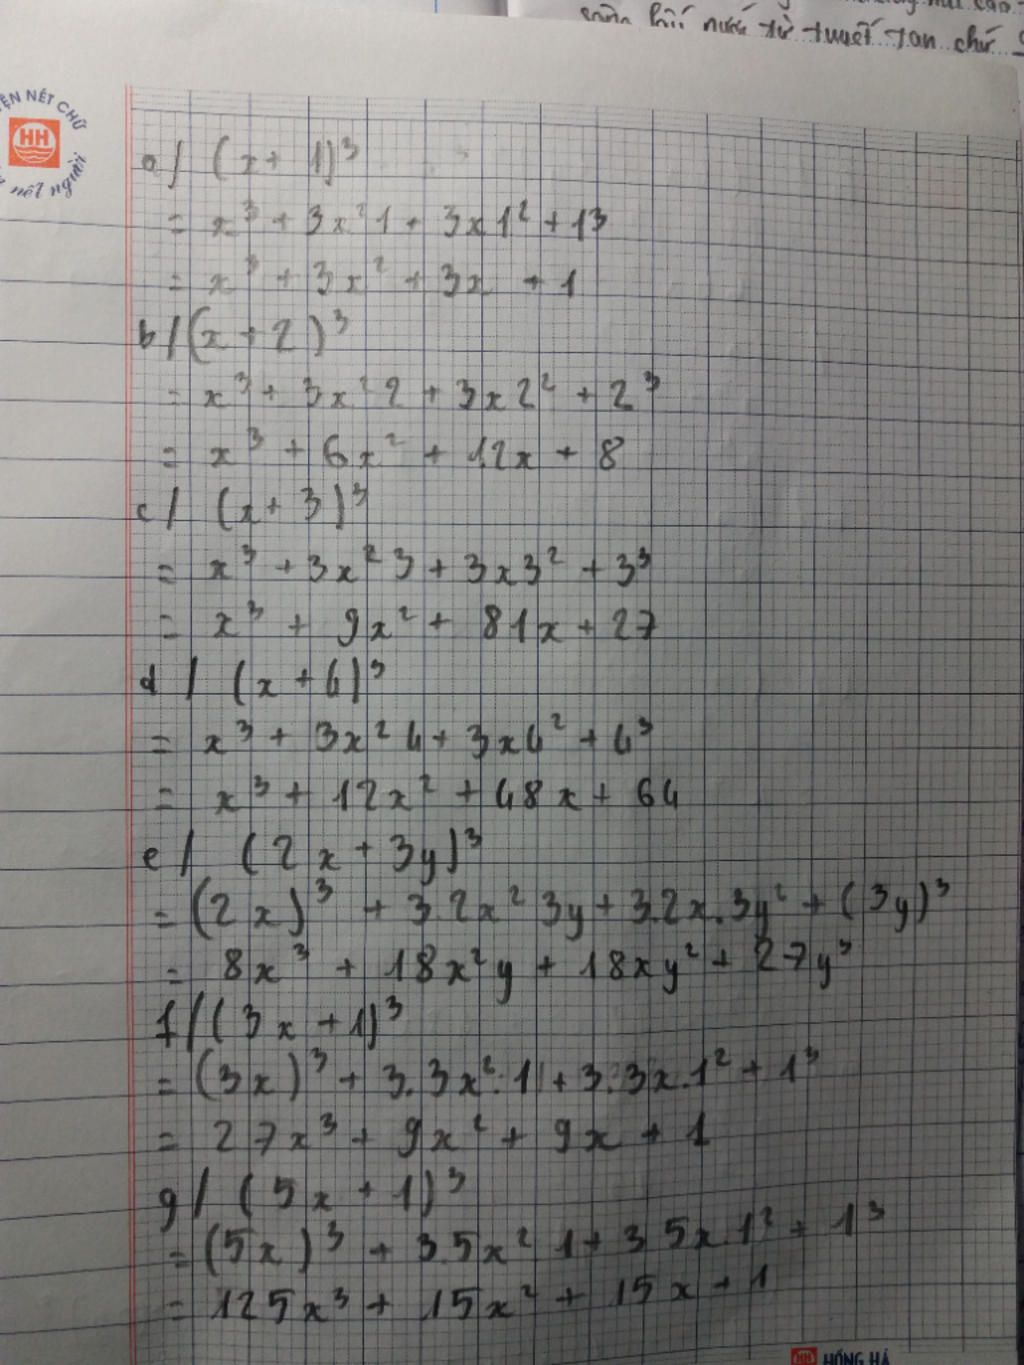 sườn núi nước từ tuyết tan chứ
ỆN NÉT CHỮ
HH
nét người
a/ (x + 1)³
= x³ + 3x²1 + 3x1² + 1³
= x³ + 3x² + 3x + 1
b/ (x + 2)³
= x³ + 3x²2 + 3x2² + 2³
= x³ + 6x² + 12x + 8
c/ (x + 3)³
= x³ + 3x²3 + 3x3² + 3³
= x³ + 9x² + 81x + 27
d/ (x + 4)³
= x³ + 3x²4 + 3x4² + 4³
= x³ + 12x² + 48x + 64
e/ (2x + 3y)³
= (2x)³ + 3.2x²3y + 3.2x.3y² + (3y)³
= 8x³ + 18x²y + 18xy² + 27y³
f/ (3x + 1)³
= (3x)³ + 3.3x².1 + 3.3x.1² + 1³
= 27x³ + 9x² + 9x + 1
g/ (5x + 1)³
= (5x)³ + 3.5x²1 + 3.5x.1² + 1³
= 125x³ + 15x² + 15x + 1
HH HỒNG HÀ